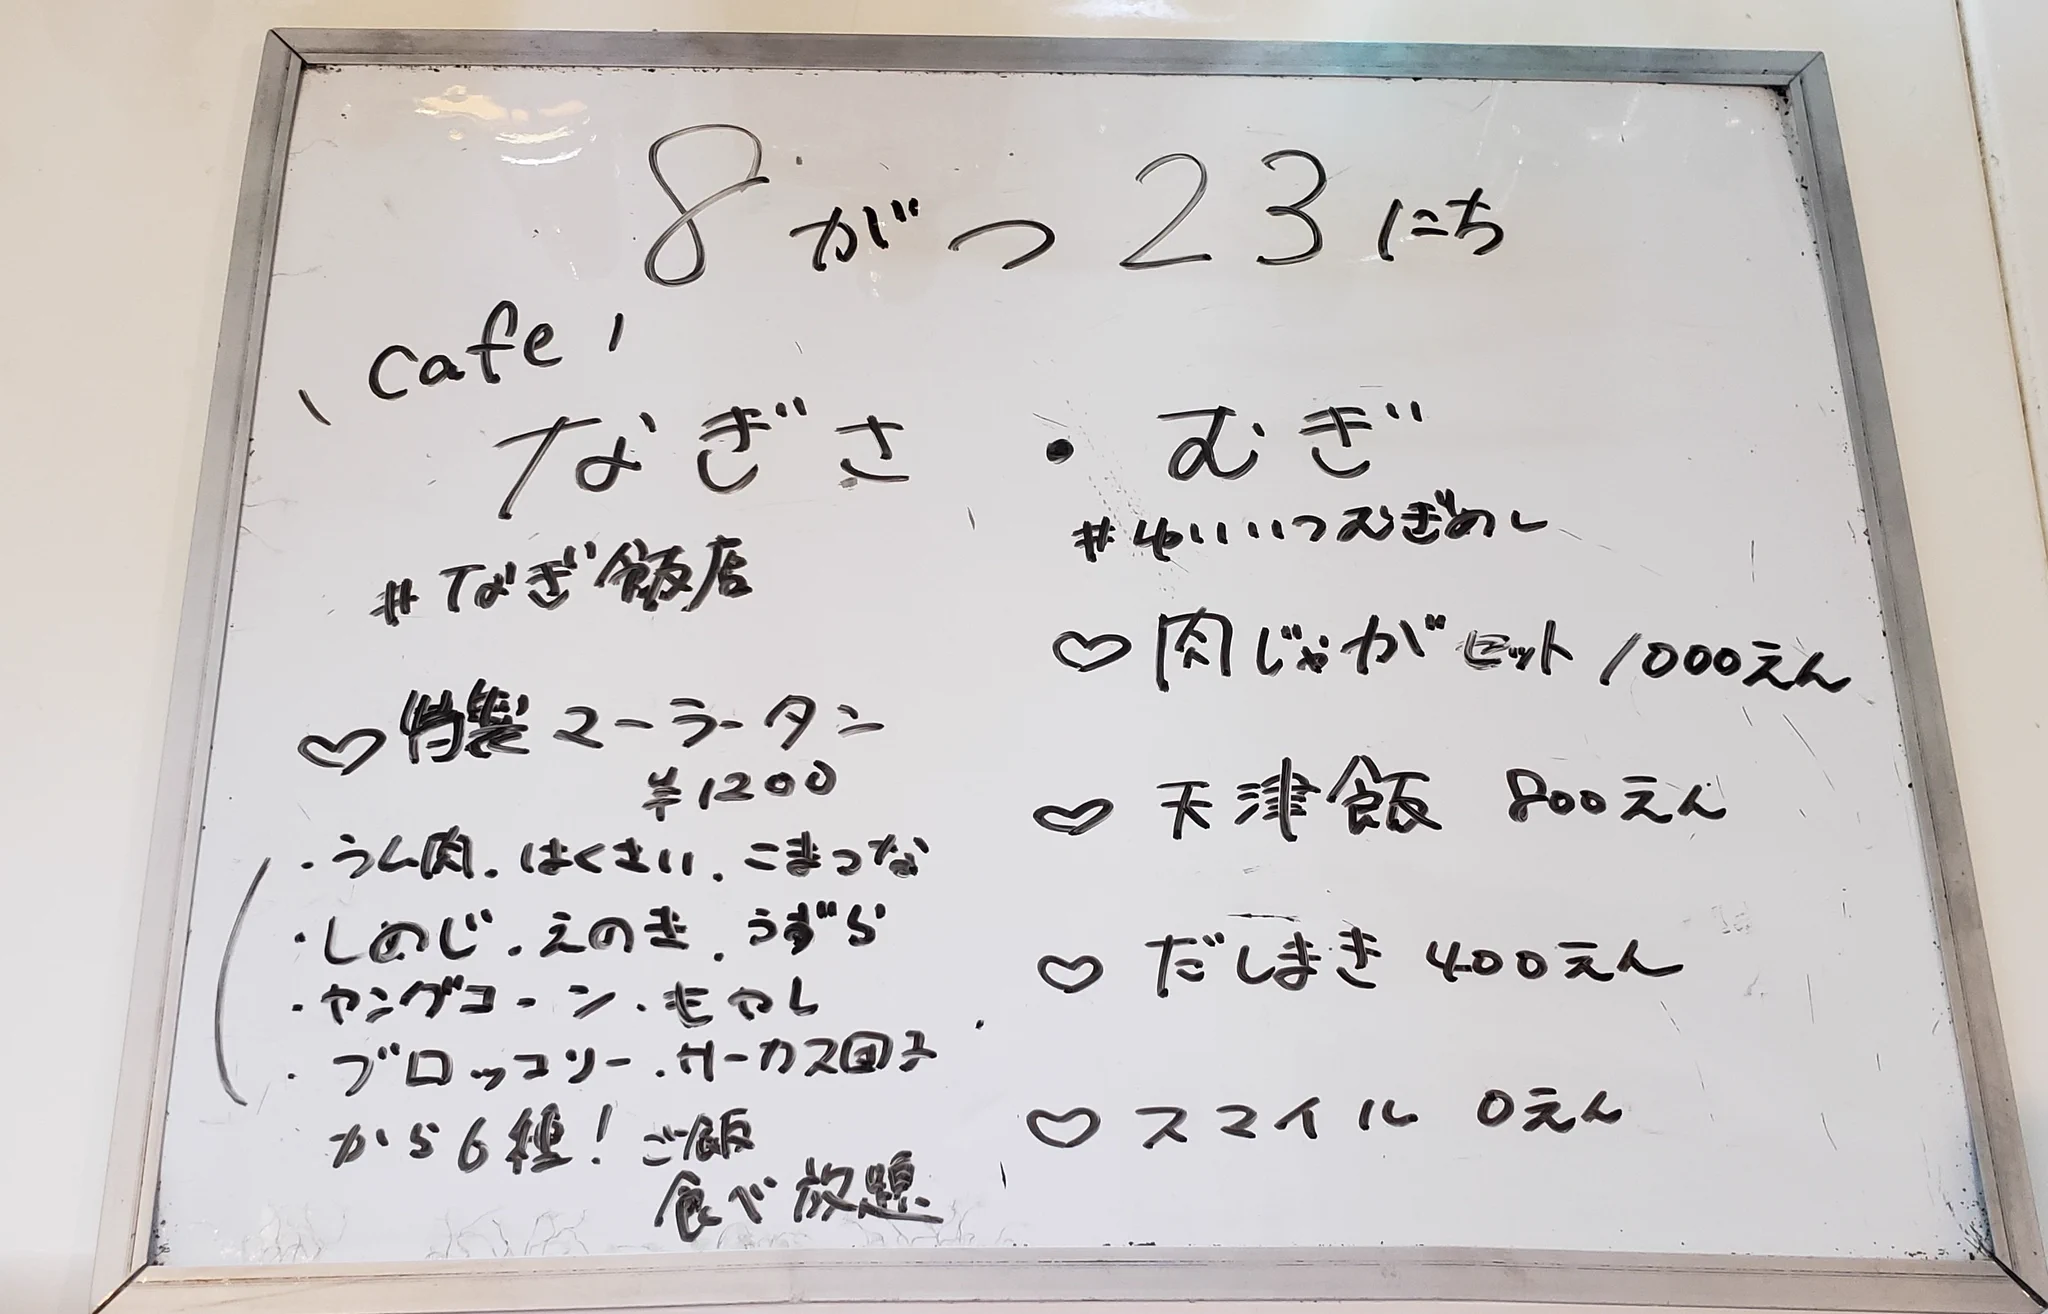 8がつ23にち
cafe
なぎさ ・ むぎ
#なぎ飯店
♡特製マーラータン
¥1200
・ラム肉.はくさい.こまつな
・しめじ.えのき.うずら
・ヤングコーン.もやし
・ブロッコリー.サーカス団子
から6種! ご飯
食べ放題
むぎめし
♡ 肉じゃがセット 1000えん
♡ 天津飯 800えん
♡ だしまき 400えん
♡ スマイル 0えん